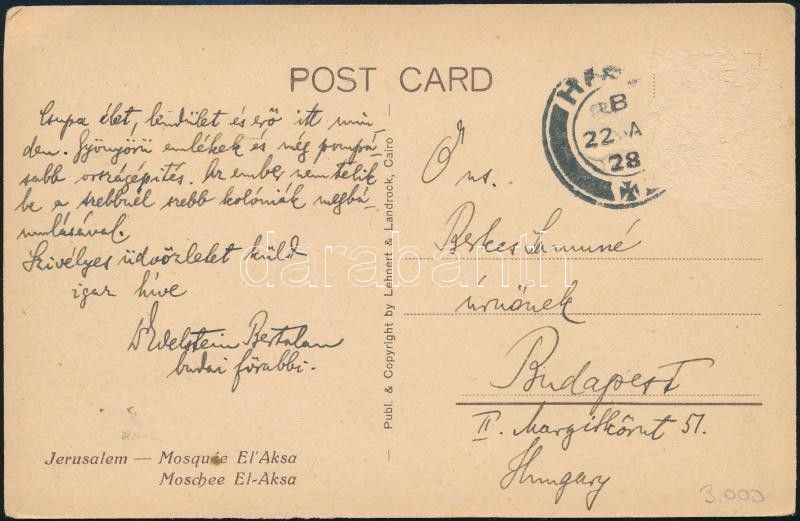 POST CARD
Csupa élet, lendület és erő itt min-
den. Gyönyörű emlékek és még pompá-
sabb országépités. Az ember nem telik
be a szebbnél szebb kolóniák megbá-
mulásával.
Szivélyes üdvözletet küld
igaz híve
Dr Edelstein Bertalan
budai főrabbi.
Jerusalem — Mosquée El'Aksa
Moschee El-Aksa
Publ. & Copyright by Lehnert & Landrock, Cairo
22
28
Ő ns.
Berkes Samuné
úrnőnek
Budapest
II. Margitkörut 51.
Hungary
3.000
darabanth